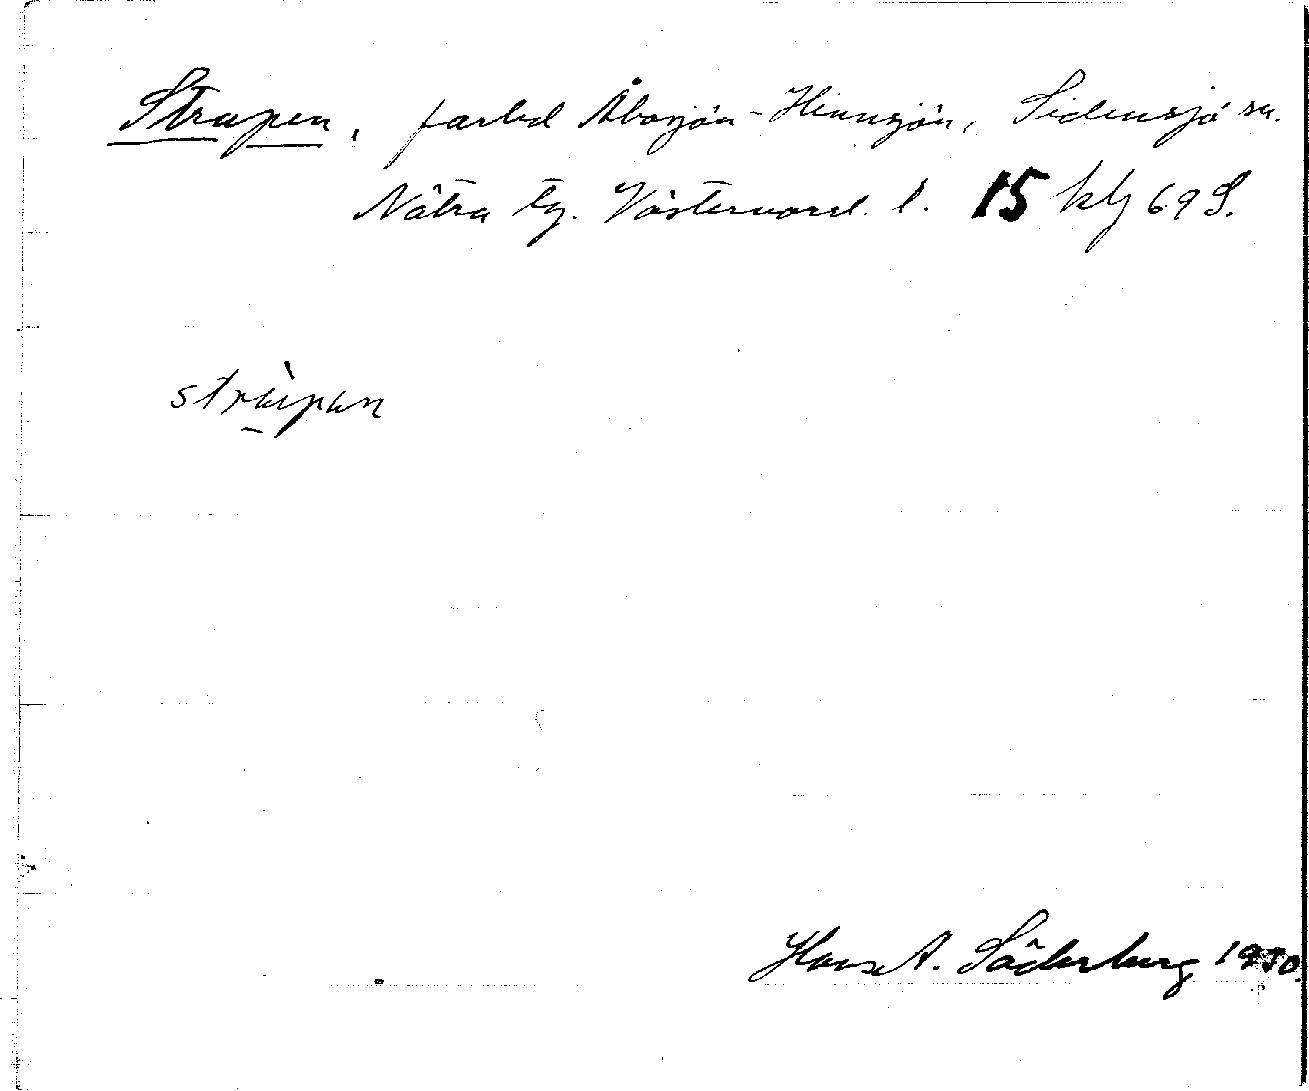 Strapen, farled Åbosjön-Hinnsjön, Sidensjö sn.
Nätra tg. Västernorrl. l. 15 kbl 69 S.
Hans A. Söderberg 1930.